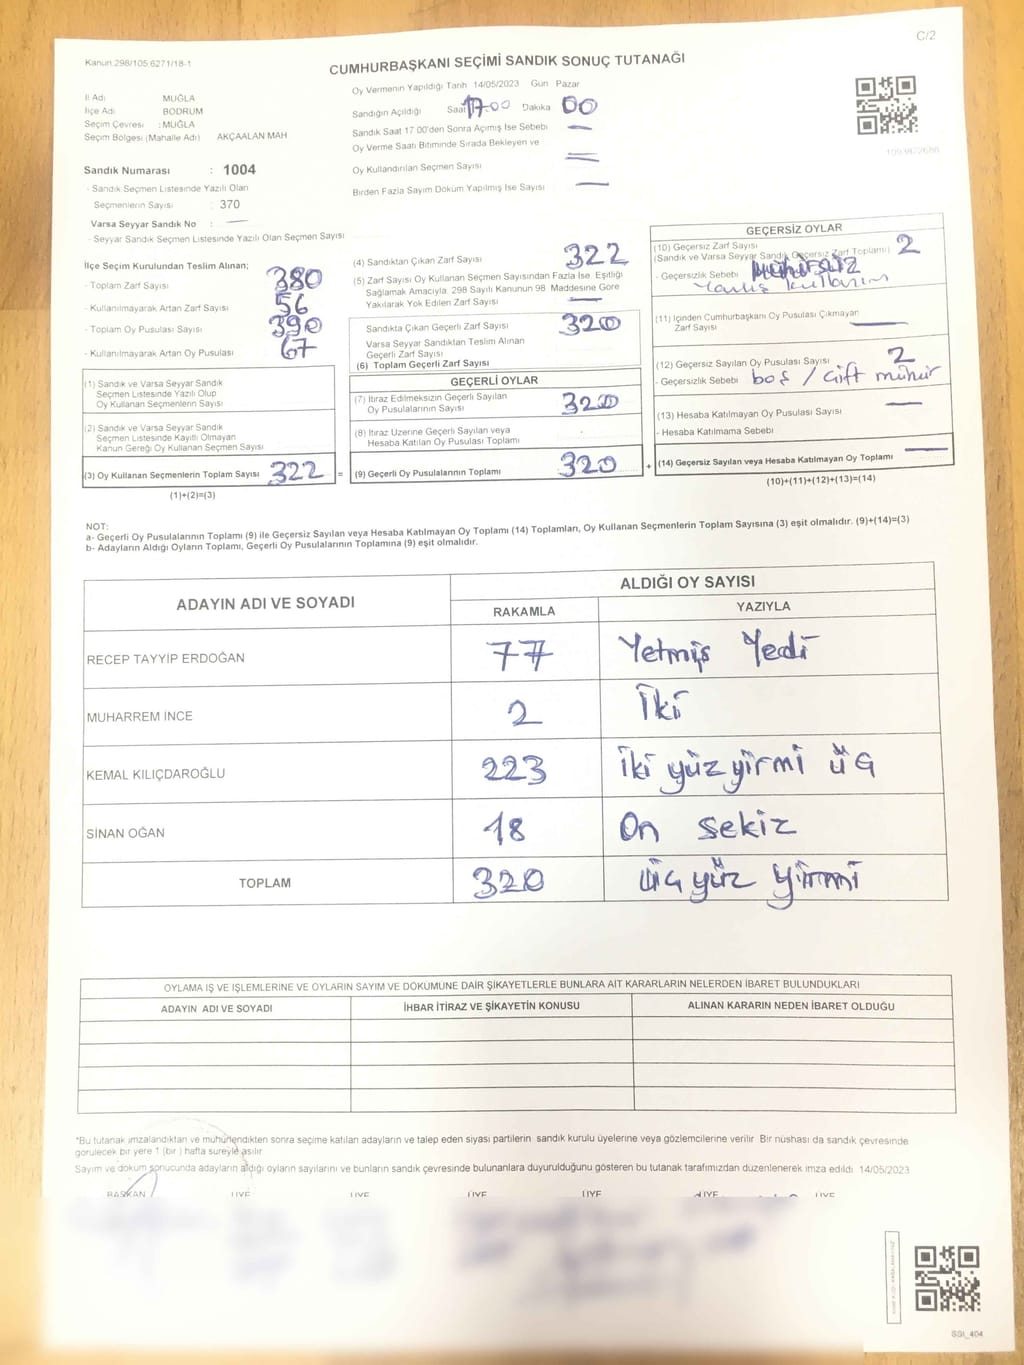 C/2
Kanun:298/105;6271/18-1
CUMHURBAŞKANI SEÇİMİ SANDIK SONUÇ TUTANAĞI
İl Adı MUĞLA
İlçe Adı BODRUM
Seçim Çevresi : MUĞLA
Seçim Bölgesi (Mahalle Adı) AKÇAALAN MAH
Sandık Numarası : 1004
- Sandık Seçmen Listesinde Yazılı Olan
Seçmenlerin Sayısı : 370
Varsa Seyyar Sandık No : —
- Seyyar Sandık Seçmen Listesinde Yazılı Olan Seçmen Sayısı
Oy Vermenin Yapıldığı Tarih 14/05/2023 Gün Pazar
Sandığın Açıldığı Saat 17.00 Dakika 00
Sandık Saat 17 00'den Sonra Açımış İse Sebebi —
Oy Verme Saati Bitiminde Sırada Bekleyen ve
Oy Kullandırılan Seçmen Sayısı
Birden Fazla Sayım Döküm Yapılmış İse Sayısı —
İlçe Seçim Kurulundan Teslim Alınan;
- Toplam Zarf Sayısı 380
- Kullanılmayarak Artan Zarf Sayısı 56
- Toplam Oy Pusulası Sayısı 390
- Kullanılmayarak Artan Oy Pusulası 67
(1) Sandık ve Varsa Seyyar Sandık
Seçmen Listesinde Yazılı Olup
Oy Kullanan Seçmenlerin Sayısı
(2) Sandık ve Varsa Seyyar Sandık
Seçmen Listesinde Kayıtlı Olmayan
Kanun Gereği Oy Kullanan Seçmen Sayısı
(3) Oy Kullanan Seçmenlerin Toplam Sayısı 322 =
(1)+(2)=(3)
(4) Sandıktan Çıkan Zarf Sayısı 322
(5) Zarf Sayısı Oy Kullanan Seçmen Sayısından Fazla İse. Eşitliği
Sağlamak Amacıyla. 298 Sayılı Kanunun 98 Maddesine Göre
Yakılarak Yok Edilen Zarf Sayısı —
Sandıkta Çıkan Geçerli Zarf Sayısı 320
Varsa Seyyar Sandıktan Teslim Alınan
Geçerli Zarf Sayısı
(6) Toplam Geçerli Zarf Sayısı
GEÇERLİ OYLAR
(7) İtiraz Edilmeksizin Geçerli Sayılan
Oy Pusulalarının Sayısı 320
(8) İtiraz Üzerine Geçerli Sayılan veya
Hesaba Katılan Oy Pusulası Toplamı
(9) Geçerli Oy Pusulalarının Toplamı 320 +
GEÇERSİZ OYLAR
(10) Geçersiz Zarf Sayısı
(Sandık ve Varsa Seyyar Sandık Geçersiz Zarf Toplamı) 2
- Geçersizlik Sebebi mühürsüz
Yanlış kullanım
(11) İçinden Cumhurbaşkanı Oy Pusulası Çıkmayan
Zarf Sayısı —
(12) Geçersiz Sayılan Oy Pusulası Sayısı 2
- Geçersizlik Sebebi boş / Çift mühür
(13) Hesaba Katılmayan Oy Pusulası Sayısı —
- Hesaba Katılmama Sebebi
(14) Geçersiz Sayılan veya Hesaba Katılmayan Oy Toplamı —
(10)+(11)+(12)+(13)=(14)
NOT:
a- Geçerli Oy Pusulalarının Toplamı (9) ile Geçersiz Sayılan veya Hesaba Katılmayan Oy Toplamı (14) Toplamları, Oy Kullanan Seçmenlerin Toplam Sayısına (3) eşit olmalıdır. (9)+(14)=(3)
b- Adayların Aldığı Oyların Toplamı, Geçerli Oy Pusulalarının Toplamına (9) eşit olmalıdır.
ADAYIN ADI VE SOYADI ALDIĞI OY SAYISI
RAKAMLA YAZIYLA
RECEP TAYYİP ERDOĞAN 77 Yetmiş Yedi
MUHARREM İNCE 2 İki
KEMAL KILIÇDAROĞLU 223 İki yüz yirmi üç
SİNAN OĞAN 18 On sekiz
TOPLAM 320 üç yüz yirmi
OYLAMA İŞ VE İŞLEMLERİNE VE OYLARIN SAYIM VE DÖKÜMÜNE DAİR ŞİKAYETLERLE BUNLARA AİT KARARLARIN NELERDEN İBARET BULUNDUKLARI
ADAYIN ADI VE SOYADI İHBAR İTİRAZ VE ŞİKAYETİN KONUSU ALINAN KARARIN NEDEN İBARET OLDUĞU
*Bu tutanak imzalandıktan ve mühürlendikten sonra seçime katılan adayların ve talep eden siyasi partilerin sandık kurulu üyelerine veya gözlemcilerine verilir Bir nüshası da sandık çevresinde
görülecek bir yere 1 (bir) hafta süreyle asılır
Sayım ve döküm sonucunda adayların aldığı oyların sayılarını ve bunların sandık çevresinde bulunanlara duyurulduğunu gösteren bu tutanak tarafımızdan düzenlenerek imza edildi 14/05/2023
BAŞKAN ÜYE ÜYE ÜYE ÜYE ÜYE ÜYE
SSI_404